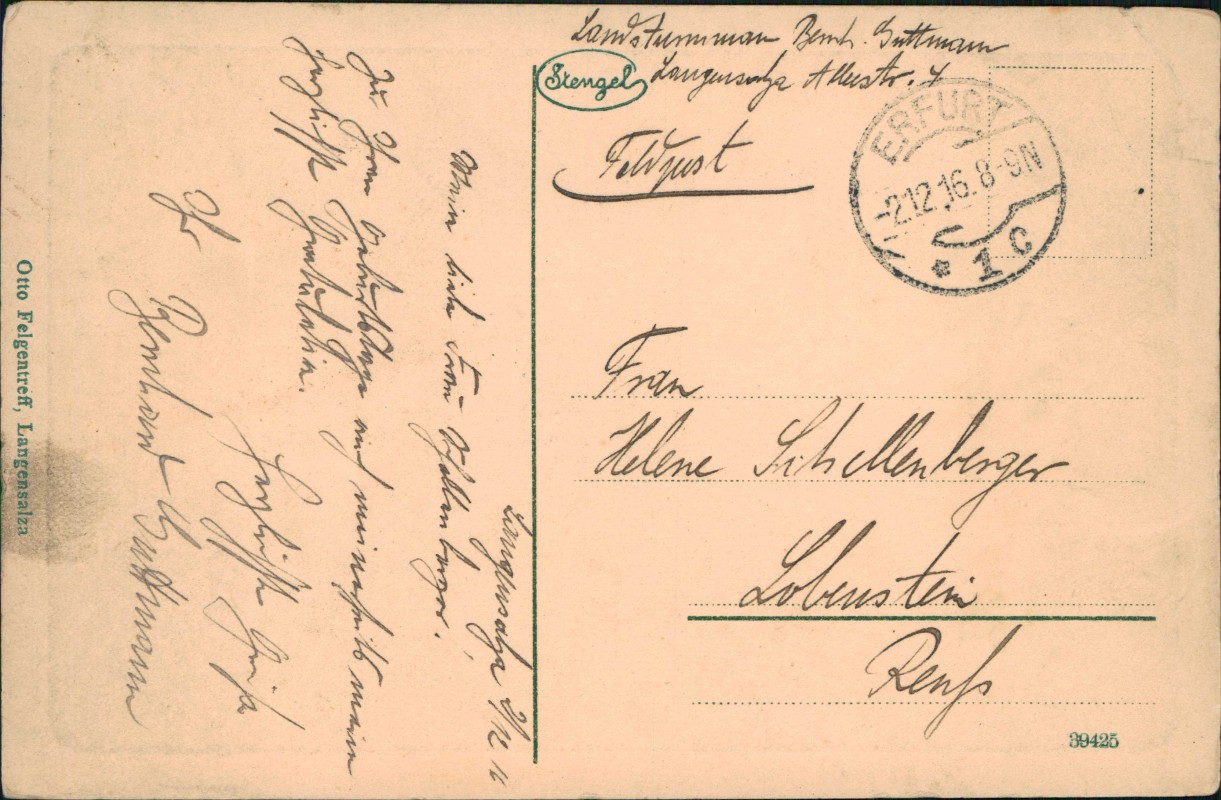 Landsturmman Bernh. Guttmann
Langensalza Alleestr. 4
Stengel
Feldpost
ERFURT
-2.12.16. 8-9N
* 1 C
Frau
Helene Schellenberger
Lobenstein
Reuß
39425
Langensalza, 2/12 16
Meine liebe Frau Schellenberger.
Zu Ihrem Geburtstage auch meinerseits meine
herzlichste Gratulation.
Herzlichste Grüße
Ihr
Bernhard Guttmann
Otto Felgentreff, Langensalza